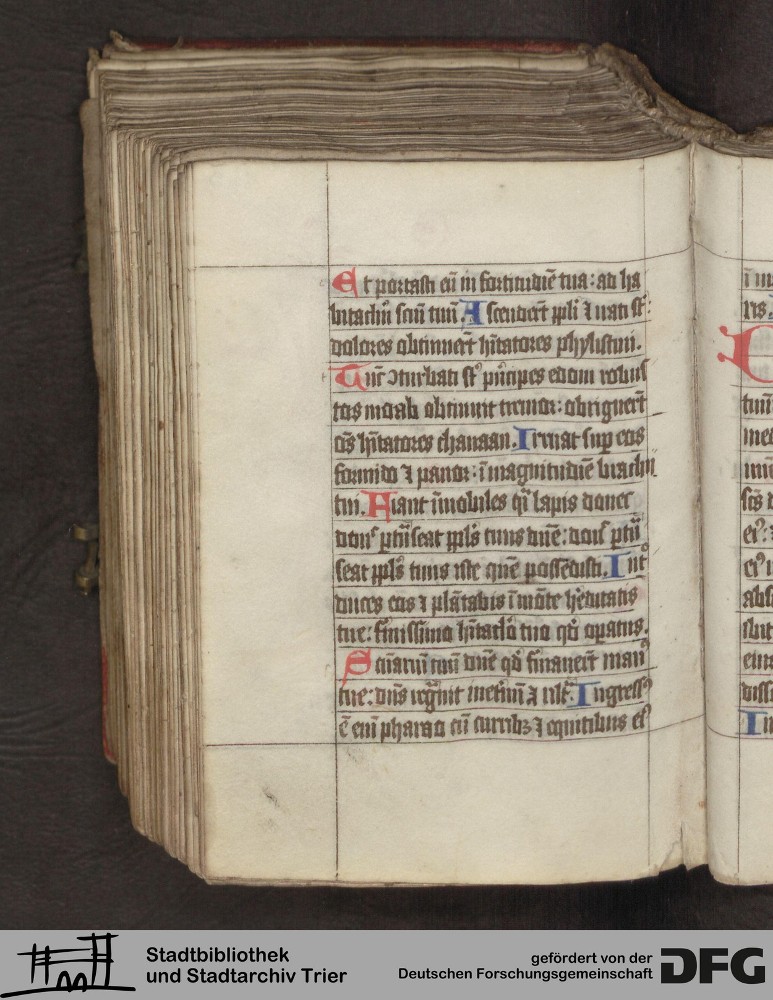 Et portasti eū in fortitudīe tua: ad ha
bitaclm̄ scm̄ tuū. Ascendert̄ ppl̄i ⁊ irati st̄:
dolores obtinuert̄ hītatores phylistini.
Tūc ↄturbati st̄ pͥncipes edom robus
tos moab obtinuit tremor: obriguert̄
oēs hītatores chanaan. Irruat sup eos
formido ⁊ pauor: ī magnitudīe brachii
tui. Fiant īmobiles qͣ lapis donec
ptͣ seat ppl̄s tuus dn̄e: donͨ ptͣ
seat ppl̄s tuus iste quē possedisti. Int̊
duces eos ⁊ plātabis ī mōte h̓editatis
tue: firmissimo hītacl̄o tuo qd̓ opatus.
Sc̄uariū tuū dn̄e qd̓ firmauert̄ manꝰ
tue: dn̄s regn̄it in et̓nū ⁊ ult͛. Ingressꝰ
ē eni pharao cū curribꝫ ⁊ equitibus eiꝰ
Stadtbibliothek
und Stadtarchiv Trier
gefördert von der
Deutschen Forschungsgemeinschaft
DFG